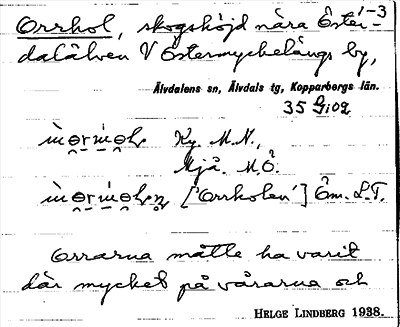 1-3
Orrhol, skogshöjd nära Öster-
dalälven V Östermyckelängs by,
Älvdalens sn, Älvdals tg, Kopparbergs län.
35 Gi02
Ky. M.N.,
Mjå. M.Ö.
['Orrholen'] Öm. L.T.
Orrarna måtte ha varit
där mycket på vårarna och
HELGE LINDBERG 1938.